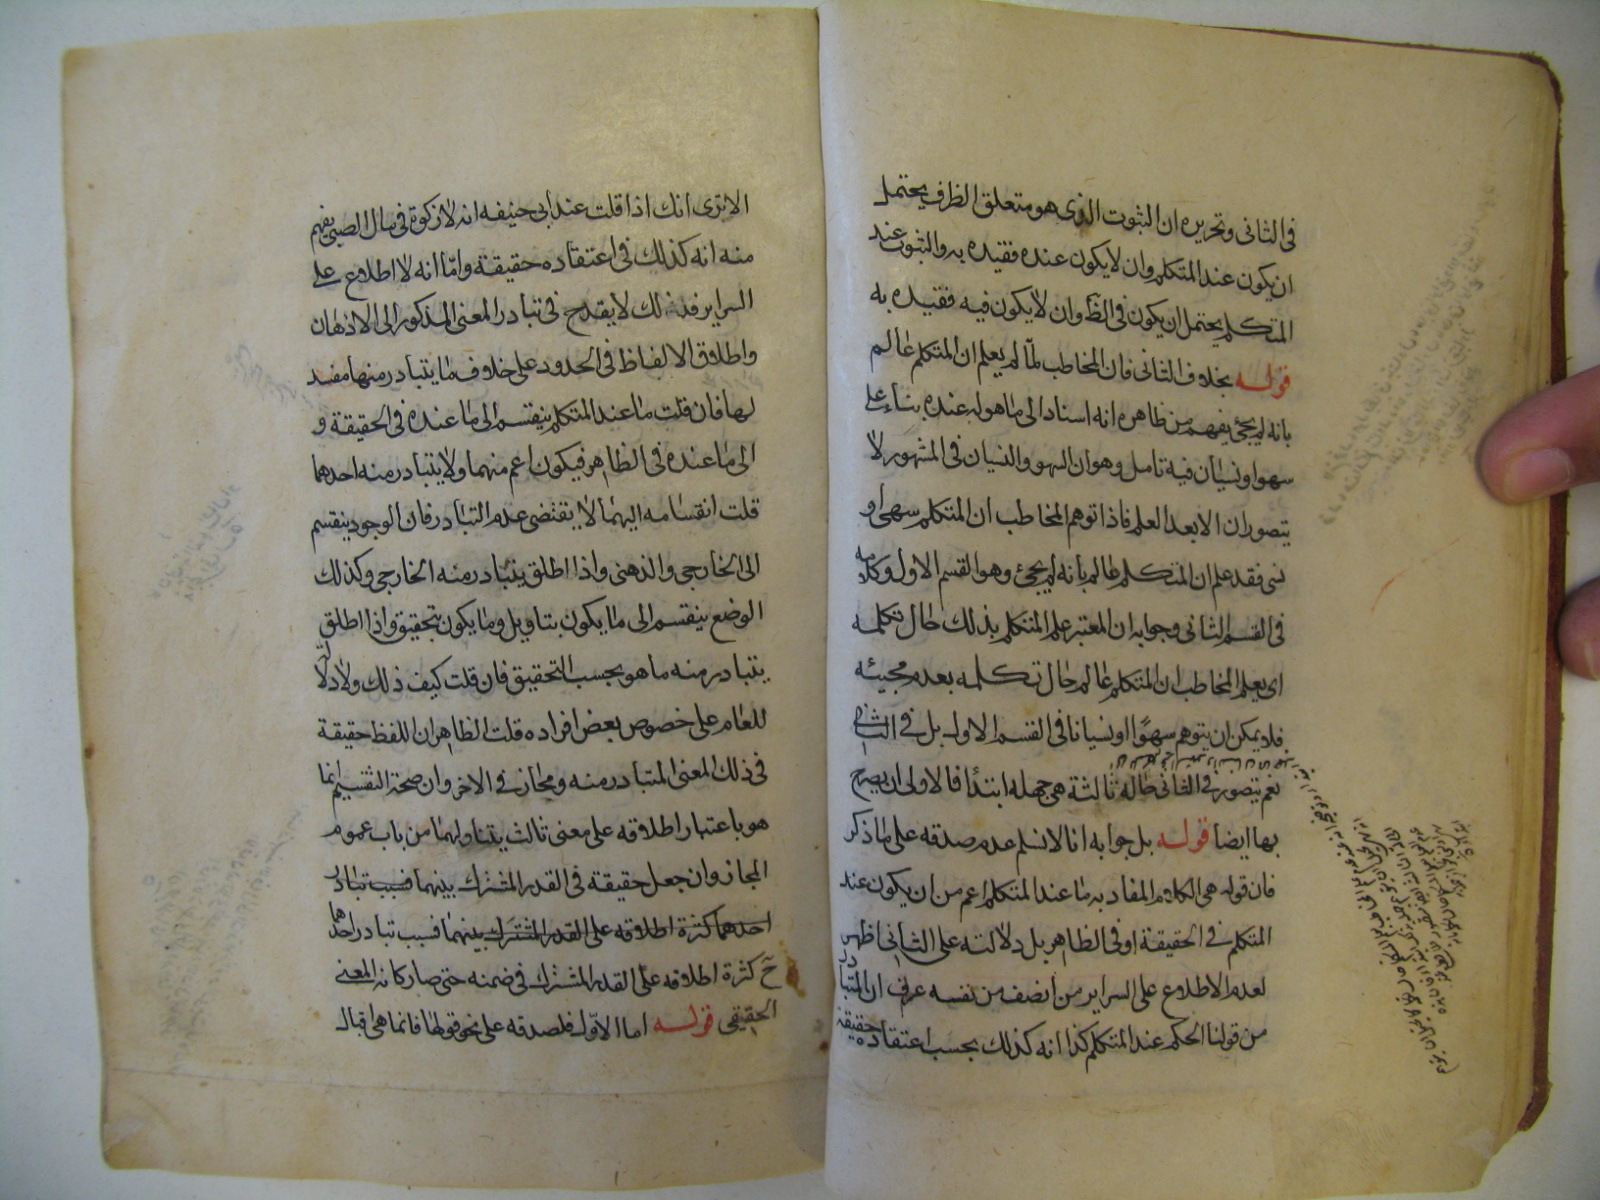 فى الثانى وتحريره ان الثبوت الذى هو متعلق الظرف يحتمل
ان يكون عند المتكلم وان لا يكون عنده فقيده به والثبوت عند
المتكلم يحتمل ان يكون فى الظ وان لا يكون فيه فقيده به
قوله بخلاف الثانى فان المخاطب لما لم يعلم ان المتكلم عالم
بانه لم يجئ يفهم من ظاهره انه اسناد الى ما هو له عنده بناء على
سهو او نسيان فيه تامل وهو ان السهو والنسيان فى المشهور لا
يتصوران الا بعد العلم فاذا توهم المخاطب ان المتكلم سهى او
نسى فقد علم ان المتكلم عالم بانه لم يجئ وهو القسم الاول وكلامه
فى القسم الثانى وجوابه ان المعتبر علم المتكلم بذلك حال تكلمه
اى يعلم المخاطب ان المتكلم عالم حال تكلمه بعدم مجيئه
فلا يمكن ان يتوهم سهوًا او نسيانا فى القسم الاول بل فى الثانى
نعم يتصور فى الثانى حالة ثالثة هى جهله ابتدأ فالاولى ان يصرح
بها ايضا قوله بل جوابه انا لا نسلم عدم صدقه على ما ذكر
فان قوله هى الكلام المفاد به ما عند المتكلم اعم من ان يكون عند
المتكلم فى الحقيقة او فى الظاهر بل دلالته على الثانى اظهر
لعدم الاطلاع على السراير من انصف من نفسه عرف ان المتبادر
من قولنا الحكم عند المتكلم كذا انه كذلك بحسب اعتقاده حقيقة
الا ترى انك اذا قلت عند ابى حنيفه انه لا زكوة فى مال الصبى يفهم
منه انه كذلك فى اعتقاده حقيقة واما انه لا اطلاع على
السراير فذلك لا يقدح فى تبادر المعنى المذكور الى الاذهان
واطلاق الالفاظ فى الحدود على خلاف ما يتبادر منها مفسد
لها فان قلت ما عند المتكلم ينقسم الى ما عنده فى الحقيقة و
الى ما عنده فى الظاهر فيكون اعم منهما ولا يتبادر منه احدهما
قلت انقسامه اليهما لا يقتضى عدم التبادر فان الوجود ينقسم
الى الخارجى والذهنى واذا اطلق يتبادر منه الخارجى وكذلك
الوضع ينقسم الى ما يكون بتاويل وما يكون بتحقيق واذا اطلق
يتبادر منه ما هو بحسب التحقيق فان قلت كيف ذلك ولا دلالة
للعام على خصوص بعض افراده قلت الظاهر ان للفظ حقيقة
فى ذلك المعنى المتبادر منه ومجاز فى الاخر وان صحة التقسيم انما
هو باعتبار اطلاقه على معنى ثالث يتناولهما من باب عموم
المجاز وان جعل حقيقة فى القدر المشترك بينهما فسبب تبادر
احدهما كثرة اطلاقه على القدر المشترك بينهما فسبب تبادر احدهما
ح كثرة اطلاقه على القدر المشترك فى ضمنه حتى صار كانه المعنى
الحقيقى قوله اما الاول فلصدقه على نحو قولها فانما هى اقبال